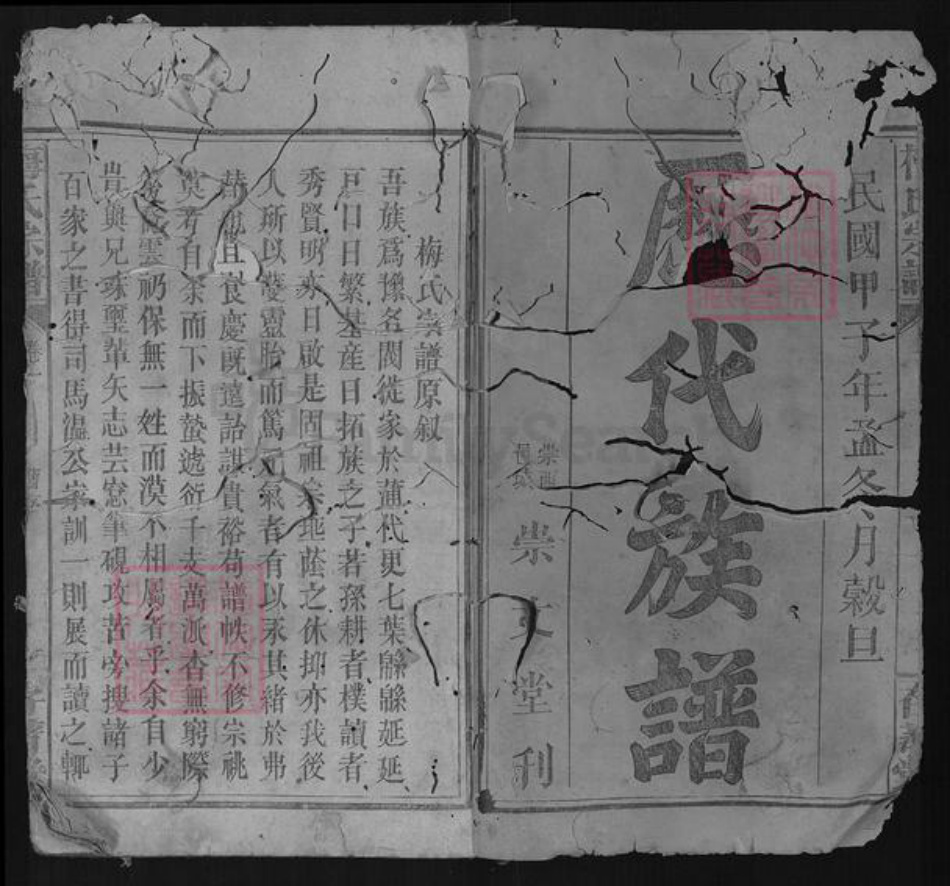 民國甲子年孟冬月穀旦
歷代族譜
崇文堂刊
梅氏宗譜
梅氏宗譜原叙
吾族爲豫名閥從家於蒲代更七葉緜緜延延
戸口日繁基産日拓族之子若孫耕者樸讀者
秀賢明亦日啟是固祖宗地蔭之休抑亦我後
人所以發靈胎而篤元氣者有以承其緒於弗
替也且食慶旣遠詒謀貴裕苟譜帙不修宗祧
莫考自余而下振蟄遞衍千支萬派杳無窮際
後裔雲礽保無一姓而漠不相屬者乎余自少
嘗與兄 璽輩矢志芸窓筆硯攻苦旁搜諸子
百家之書得司馬温公家訓一則展而讀之輒
梅氏宗譜
FamilySearch